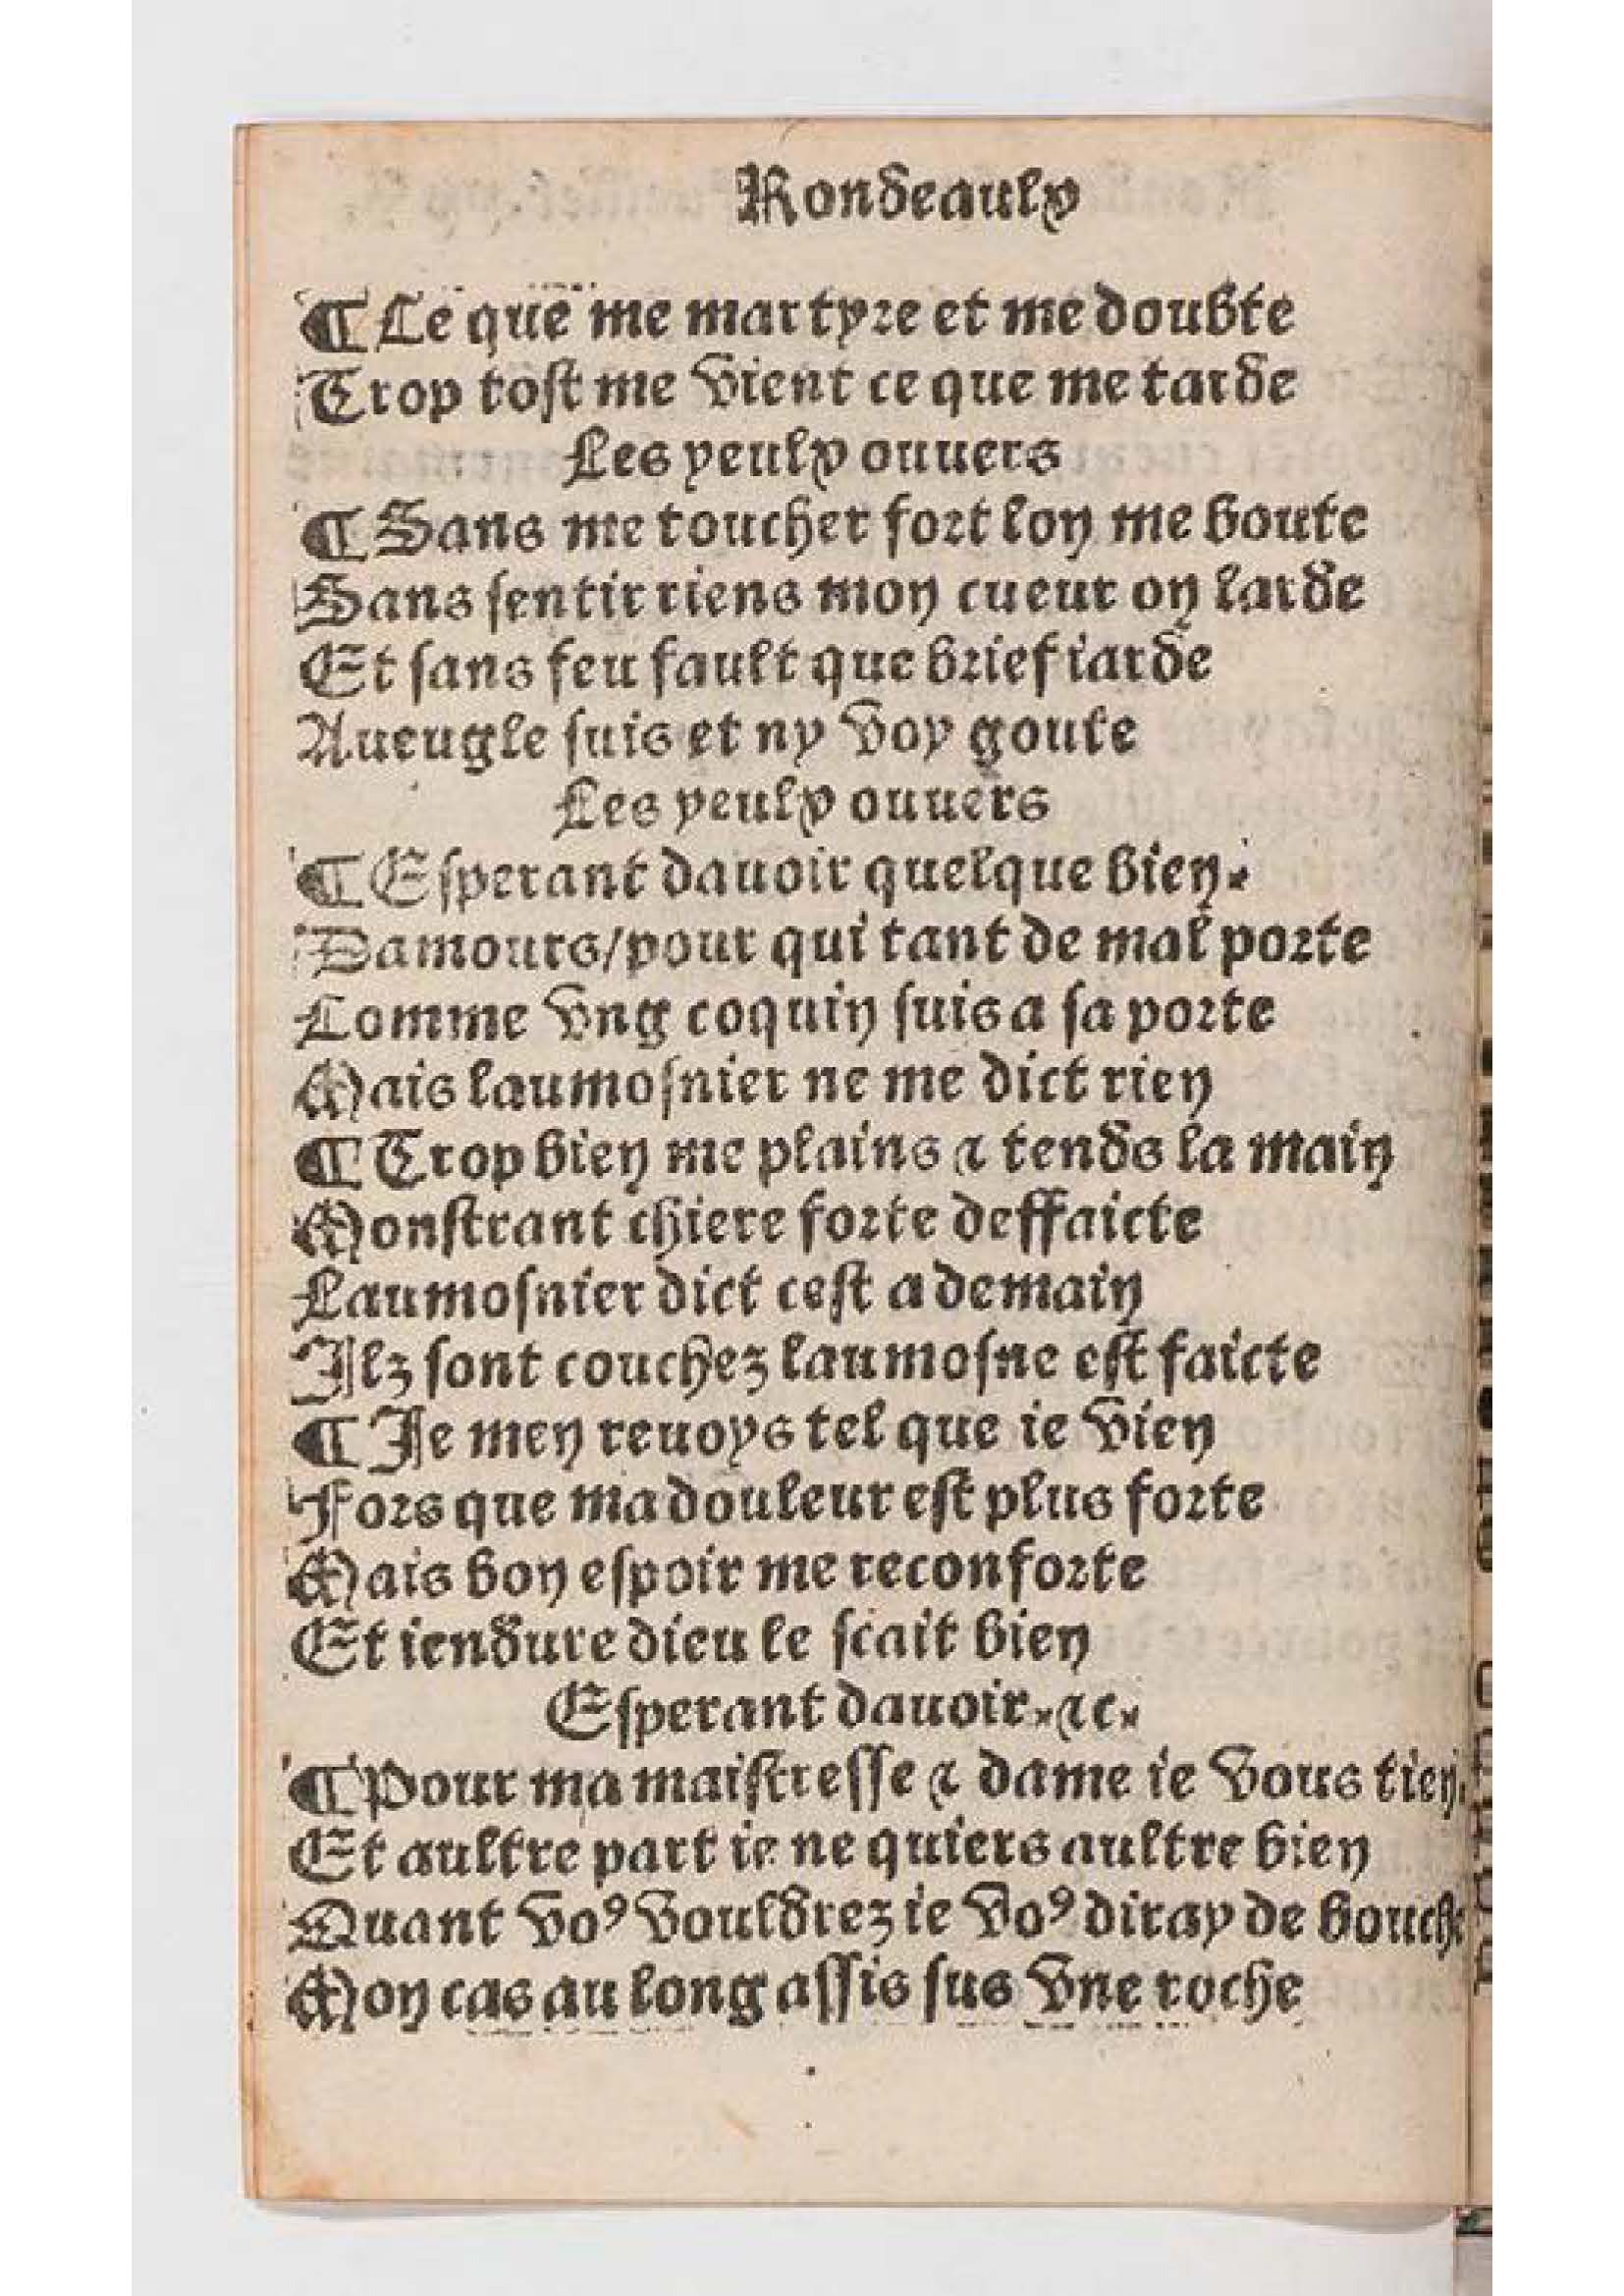 Rondeaulx
¶ Ce que me martyre et me doubte
Trop tost me vient ce que me tarde
Les yeulx ouuers
¶ Sans me toucher fort loy me boute
Sans sentir riens mon cueur on larde
Et sans feu fault que brief iarde
Aueugle suis et ny voy goute
Les yeulx ouuers
¶ Esperant dauoir quelque bien.
Damours/pour qui tant de mal porte
Comme vng coquin suis a sa porte
Mais laumosnier ne me dict rien
¶ Trop bien me plains & tends la main
Monstrant chiere forte deffaicte
Laumosnier dict cest a demain
Ilz sont couchez laumosne est faicte
¶ Je men reuoys tel que ie vien
Fors que ma douleur est plus forte
Mais bon espoir me reconforte
Et iendure dieu le scait bien
Esperant dauoir.&c.
¶ Pour ma maistresse & dame ie vous tien.
Et aultre part ie ne quiers aultre bien
Quant voꝰ vouldrez ie voꝰ diray de bouche
Mon cas au long assis sus vne roche